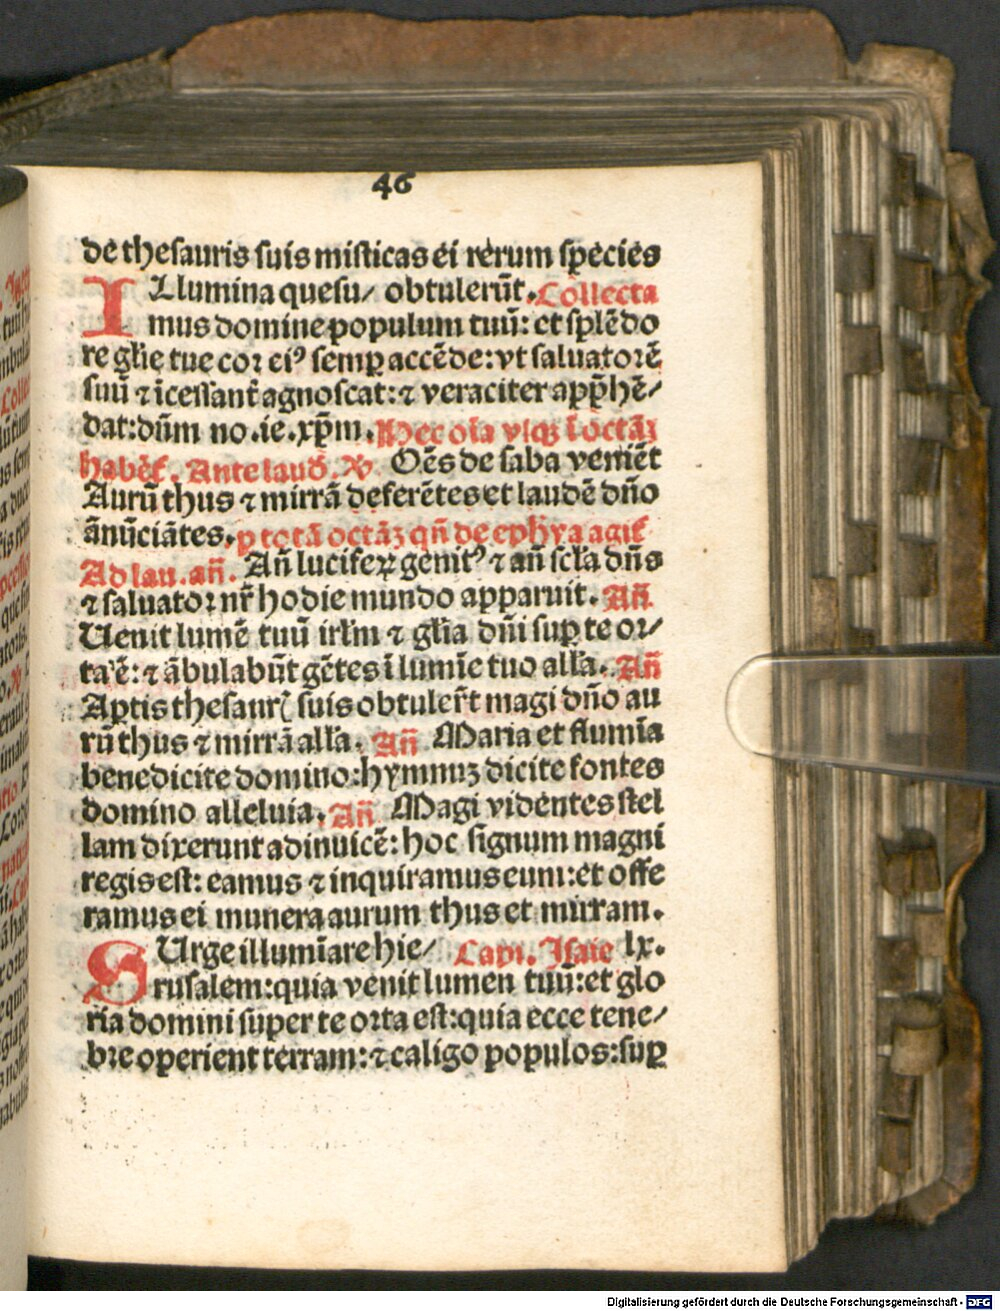 46
de thesauris suis misticas ei rerum species
ILlumina quesu/ obtulerūt. Collecta
mus domine populum tuū: et splēdo
re glīe tue cor eiꝰ semꝑ accēde: vt saluatorē
suū ⁊ īcessant̄ agnoscat: ⁊ veraciter apꝑhē/
dat: dūm no. ie. xp̄m. Hec oīa vsqꝫ ī octāꝫ
habēt̄. Ante laud̄. ℣. Oēs de saba veniēt
Aurū thus ⁊ mirrā deferētes et laudē dn̄o
ānūciātes. ꝑ totā octāꝫ qn̄ de ephya agit̄
Ad lau. an̄. An̄ luciferꝝ genitꝰ ⁊ an̄ scl̄a dn̄s
⁊ saluator nr̄ hodie mundo apparuit. An̄
Uenit lumē tuū irlm̄ ⁊ glīa dn̄i suꝑ te or/
ta ē: ⁊ ābulabūt gētes ī lumīe tuo all̄a. An̄
Aꝑtis thesaurꝭ suis obtuler̄t magi dn̄o au
rū thus ⁊ mirrā all̄a. An̄ Maria et flumīa
benedicite domino: hymnuꝫ dicite fontes
domino alleluia. An̄ Magi videntes stel
lam dixerunt adinuicē: hoc signum magni
regis est: eamus ⁊ inquiramus eum: et offe
ramus ei munera aurum thus et mirram.
SUrge illumīare hie/ Capi. Isaie lx.
rusalem: quia venit lumen tuū: et glo
ria domini super te orta est: quia ecce tene/
bre operient terram: ⁊ caligo populos: suꝑ
Digitalisierung gefördert durch die Deutsche Forschungsgemeinschaft - DFG